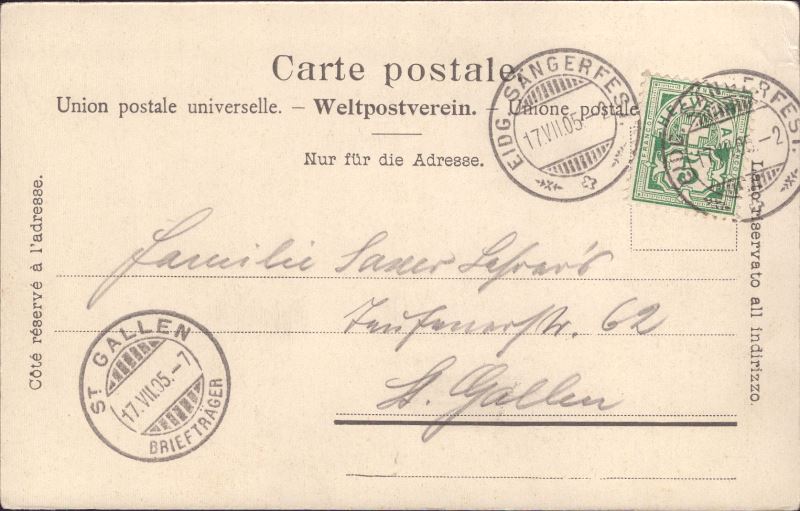 Carte postale.
Union postale universelle. – Weltpostverein. – Unione postale
Nur für die Adresse.
EIDG. SÄNGERFEST.
17.VII.05.
EIDG. SÄNGERFEST.
17.VII.05.-2
FRANCO
Côté réservé à l'adresse.
Lato riservato all indirizzo.
Familie Saxer Lehrer's
Teufenerstr. 62
St. Gallen
ST. GALLEN
17.VII.05.-7
BRIEFTRÄGER